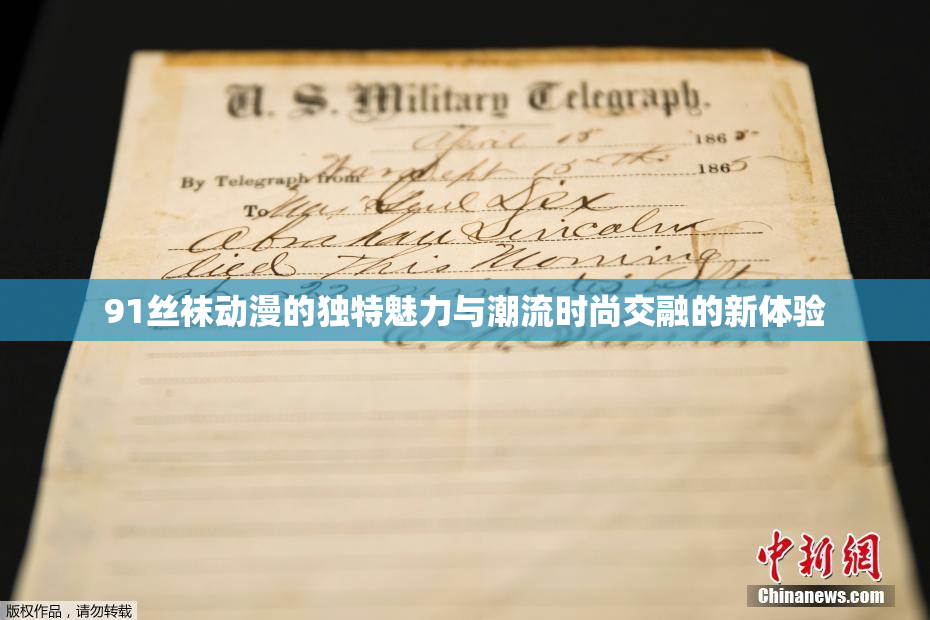 U. S. Military Telegraph.
April 15 1865
By Telegraph from War Dept 15th 1865
To Maj Genl Dix
Abraham Lincoln
died This Morning
at 22 minutes after
91丝袜动漫的独特魅力与潮流时尚交融的新体验
E. M. Stanton
中新网
Chinanews.com
版权作品，请勿转载